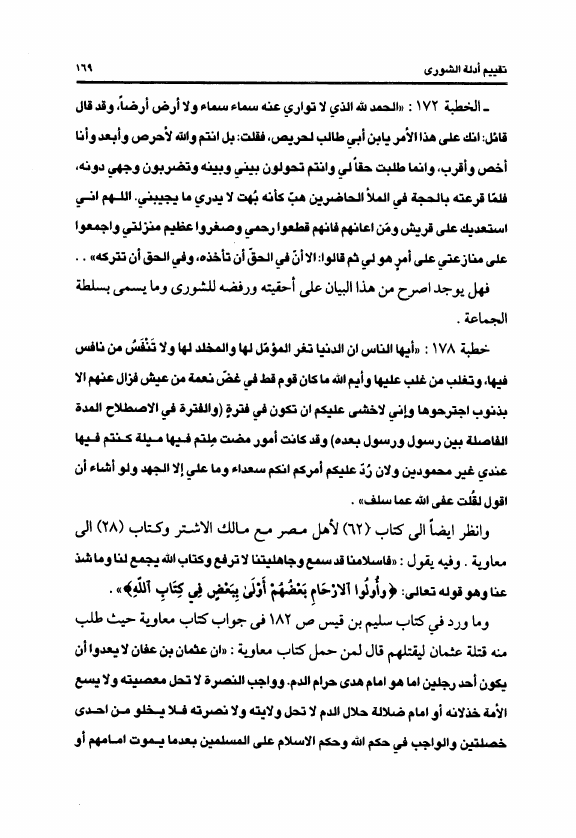 تقييم أدلة الشورى ١٦٩
ـ الخطبة ١٧٢ : «الحمد لله الذي لا تواري عنه سماء سماء ولا أرض أرضاً، وقد قال
قائل: انك على هذا الأمر يابن أبي طالب لحريص، فقلت: بل انتم والله لأحرص وأبعد وأنا
أخص وأقرب، وانما طلبت حقاً لي وانتم تحولون بيني وبينه وتضربون وجهي دونه،
فلمّا قرعته بالحجة في الملأ الحاضرين هبّ كأنه بُهت لا يدري ما يجيبني. اللـهم انـي
استعديك على قريش ومَن اعانهم فانهم قطعوا رحمي وصغروا عظيم منزلتي واجمعوا
على منازعتي على أمرٍ هو لي ثم قالوا: الا أنّ في الحقّ أن تأخذه، وفي الحق أن تتركه» . .
فهل يوجد اصرح من هذا البيان على أحقيته ورفضه للشورى وما يسمى بسلطة
الجماعة .
خطبة ١٧٨ : «أيها الناس ان الدنيا تغر المؤمّل لها والمخلد لها ولا تَنْفَسُ من نافس
فيها، وتغلب من غلب عليها وأيم الله ما كان قوم قط في غضّ نعمة من عيش فزال عنهم الا
بذنوب اجترحوها وإني لاخشى عليكم ان تكون في فترةٍ (والفترة في الاصطلاح المدة
الفاصلة بين رسول ورسول بعده) وقد كانت أمور مضت مِلتم فيـها ميـلة كـنتم فيـها
عندي غير محمودين ولان رُدّ عليكم أمركم انكم سعداء وما علي إلا الجهد ولو أشاء أن
اقول لقُلت عفى الله عما سلف» .
وانظر ايضاً الى كتاب (٦٢) لأهل مـصر مـع مـالك الاشـتر وكـتاب (٢٨) الى
معاوية . وفيه يقول : «فاسلامنا قد سمع وجاهليتنا لا ترفع وكتاب الله يجمع لنا وما شذ
عنا وهو قوله تعالى: ﴿وأُولُوا الارْحَامِ بَعْضُهُمْ أَوْلَىٰ بِبَعْضٍ فِي كِتَابِ اللّٰهِ﴾» .
وما ورد في كتاب سليم بن قيس ص ١٨٢ فى جواب كتاب معاوية حيث طلب
منه قتلة عثمان ليقتلهم قال لمن حمل كتاب معاوية : «ان عثمان بن عفان لا يعدوا أن
يكون أحد رجلين اما هو امام هدى حرام الدم. وواجب النصرة لا تحل معصيته ولا يسع
الأمة خذلانه أو امام ضلالة حلال الدم لا تحل ولايته ولا نصرته فـلا يـخلو مـن احـدى
خصلتين والواجب في حكم الله وحكم الاسلام على المسلمين بعدما يـموت امـامهم أو